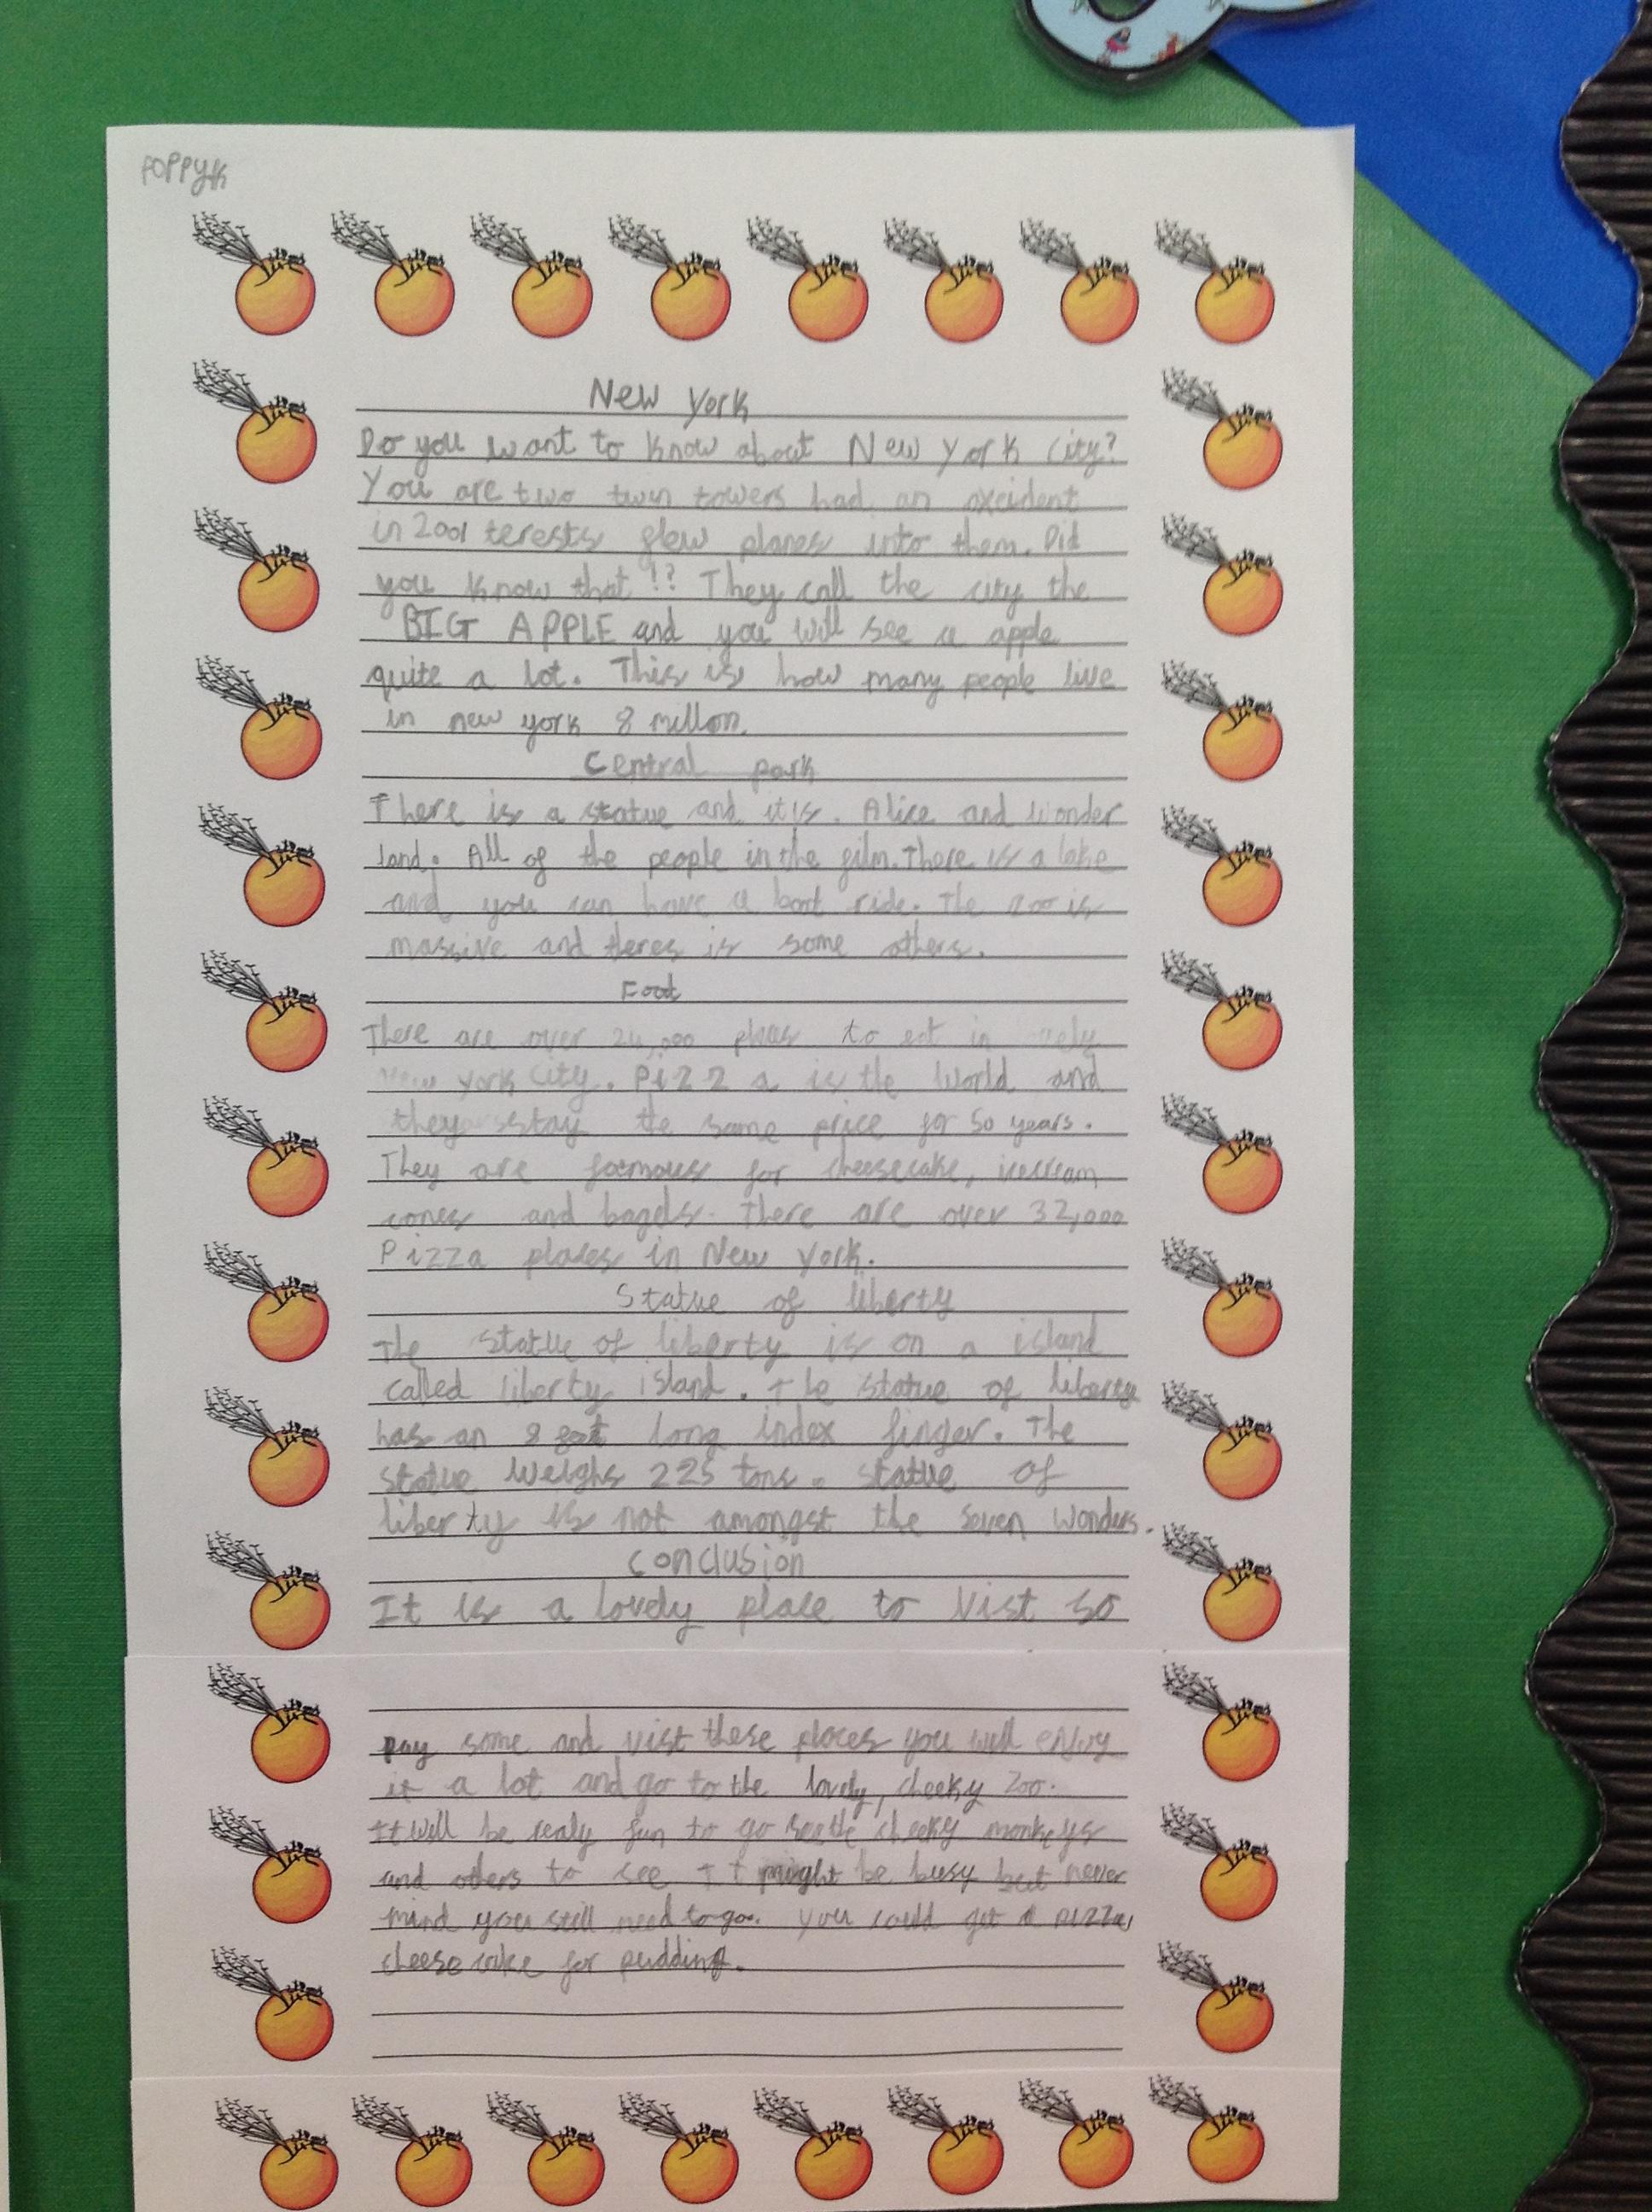 POPPYK
New York
Do you want to know about New York City?
You are two twin towers had an axcident
in 2001 terests flew planes into them. Did
you know that!? They call the city the
BIG APPLE and you will see a apple
quite a lot. This is how many people live
in new york 8 millon.
Central park
There is a statue and it is. Alice and wonder
land. All of the people in the film. There is a lake
and you can have a boat ride. The zoo is
massive and theres is some others.
Food
There are over 24,000 places to eat in
New York City. Pizza is the world and
they stay the same price for 50 years.
They are formous for cheesecake, icecream
cones and bagels. There are over 32,000
Pizza places in New York.
Statue of liberty
The statue of liberty is on a island
called liberty island. The statue of liberty
has an 8 foot long index finger. The
statue weighs 225 tons. Statue of
liberty is not amongst the seven wonders.
Conclusion
It is a lovely place to vist so
pay some and vist these places you will enjoy
it a lot and go to the lovely, cheeky zoo.
It will be realy fun to go see the cheeky monkeys
and others to see It might be busy but never
mind you still need to go. You could get a pizza,
cheese cake for pudding.